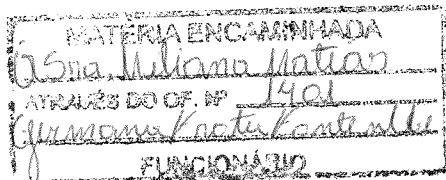 MATÉRIA ENCAMINHADA
à Sra. Juliana Matias
ATRAVÉS DO OF. Nº 1401
FUNCIONÁRIO